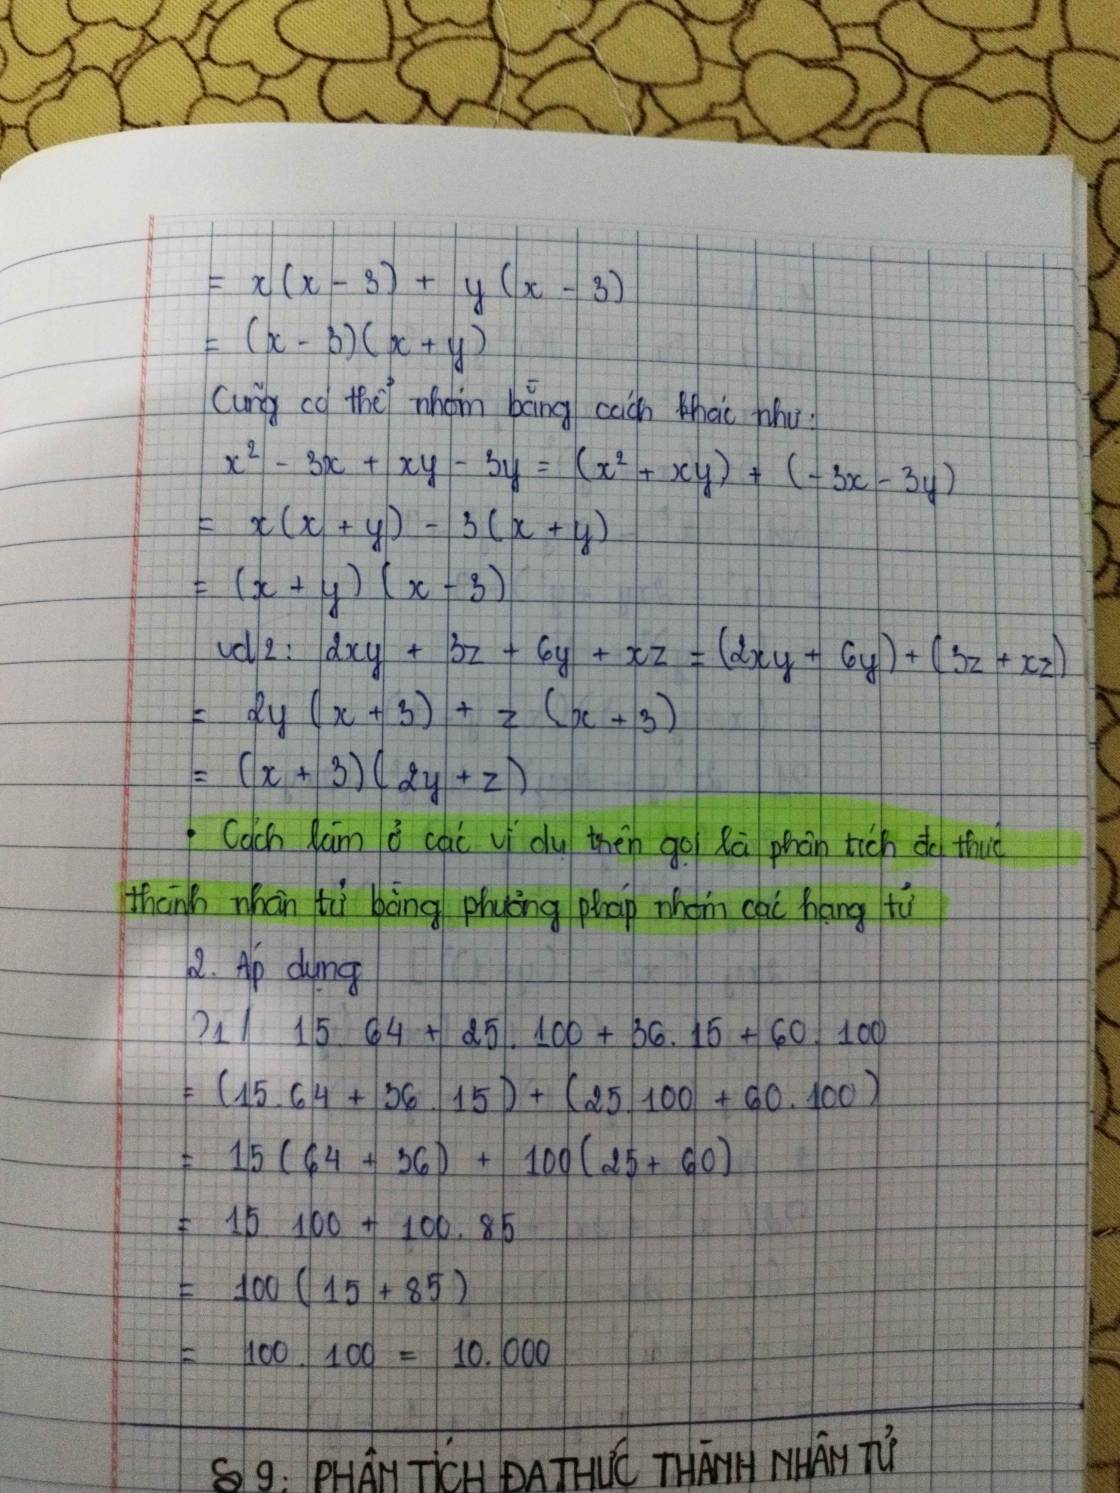 = x(x - 3) + y(x - 3)
= (x - 3)(x + y)
Cũng có thể nhóm bằng cách khác như:
x² - 3x + xy - 3y = (x² + xy) + (-3x - 3y)
= x(x + y) - 3(x + y)
= (x + y)(x - 3)
vd2: 2xy + 3z + 6y + xz = (2xy + 6y) + (3z + xz)
= 2y(x + 3) + z(x + 3)
= (x + 3)(2y + z)
• Cách làm ở các ví dụ trên gọi là phân tích đa thức
thành nhân tử bằng phương pháp nhóm các hạng tử
2. Áp dụng
?1/ 15.64 + 25.100 + 36.15 + 60.100
= (15.64 + 36.15) + (25.100 + 60.100)
= 15(64 + 36) + 100(25 + 60)
= 15.100 + 100.85
= 100(15 + 85)
= 100.100 = 10.000
§ 9: PHÂN TÍCH ĐA THỨC THÀNH NHÂN TỬ